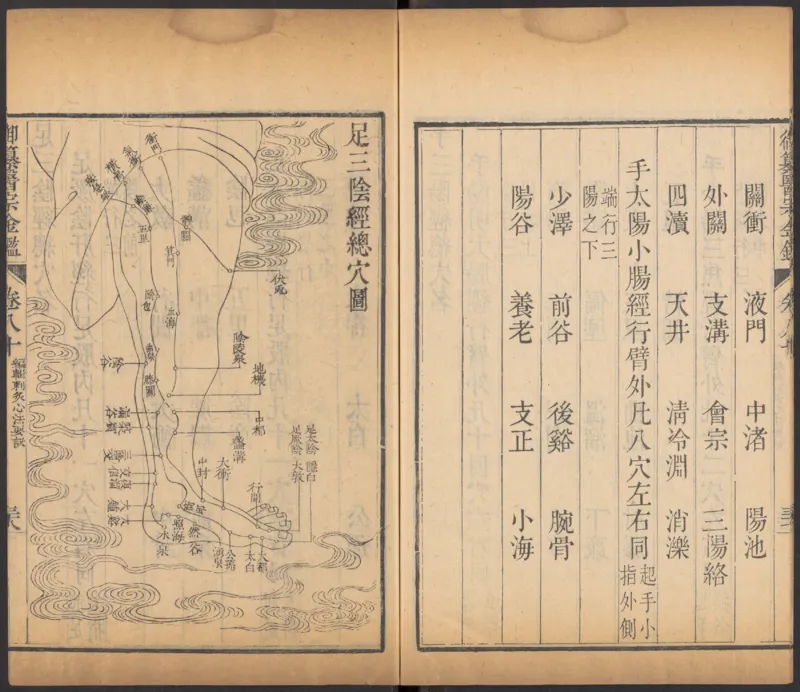 關衝 液門 中渚 陽池
外關 支溝 會宗 三陽絡
四瀆 天井 清冷淵 消濼
手太陽小腸經行臂外凡八穴左右同 起手小指外側
端行三陽之下
少澤 前谷 後谿 腕骨
陽谷 養老 支正 小海
足三陰經總穴圖
衝門
伏兔
箕門
血海
陰包
陰陵泉
地機
膝關
陰谷
中都
蠡溝
中封
足太陰 隱白
足厥陰 大敦
大衝
行間
築賓
三陰交
復溜
交信
大鐘
水泉
照海
然谷
湧泉
公孫
太白
大都
御纂醫宗金鑑
卷八十
編輯刺灸心法要訣